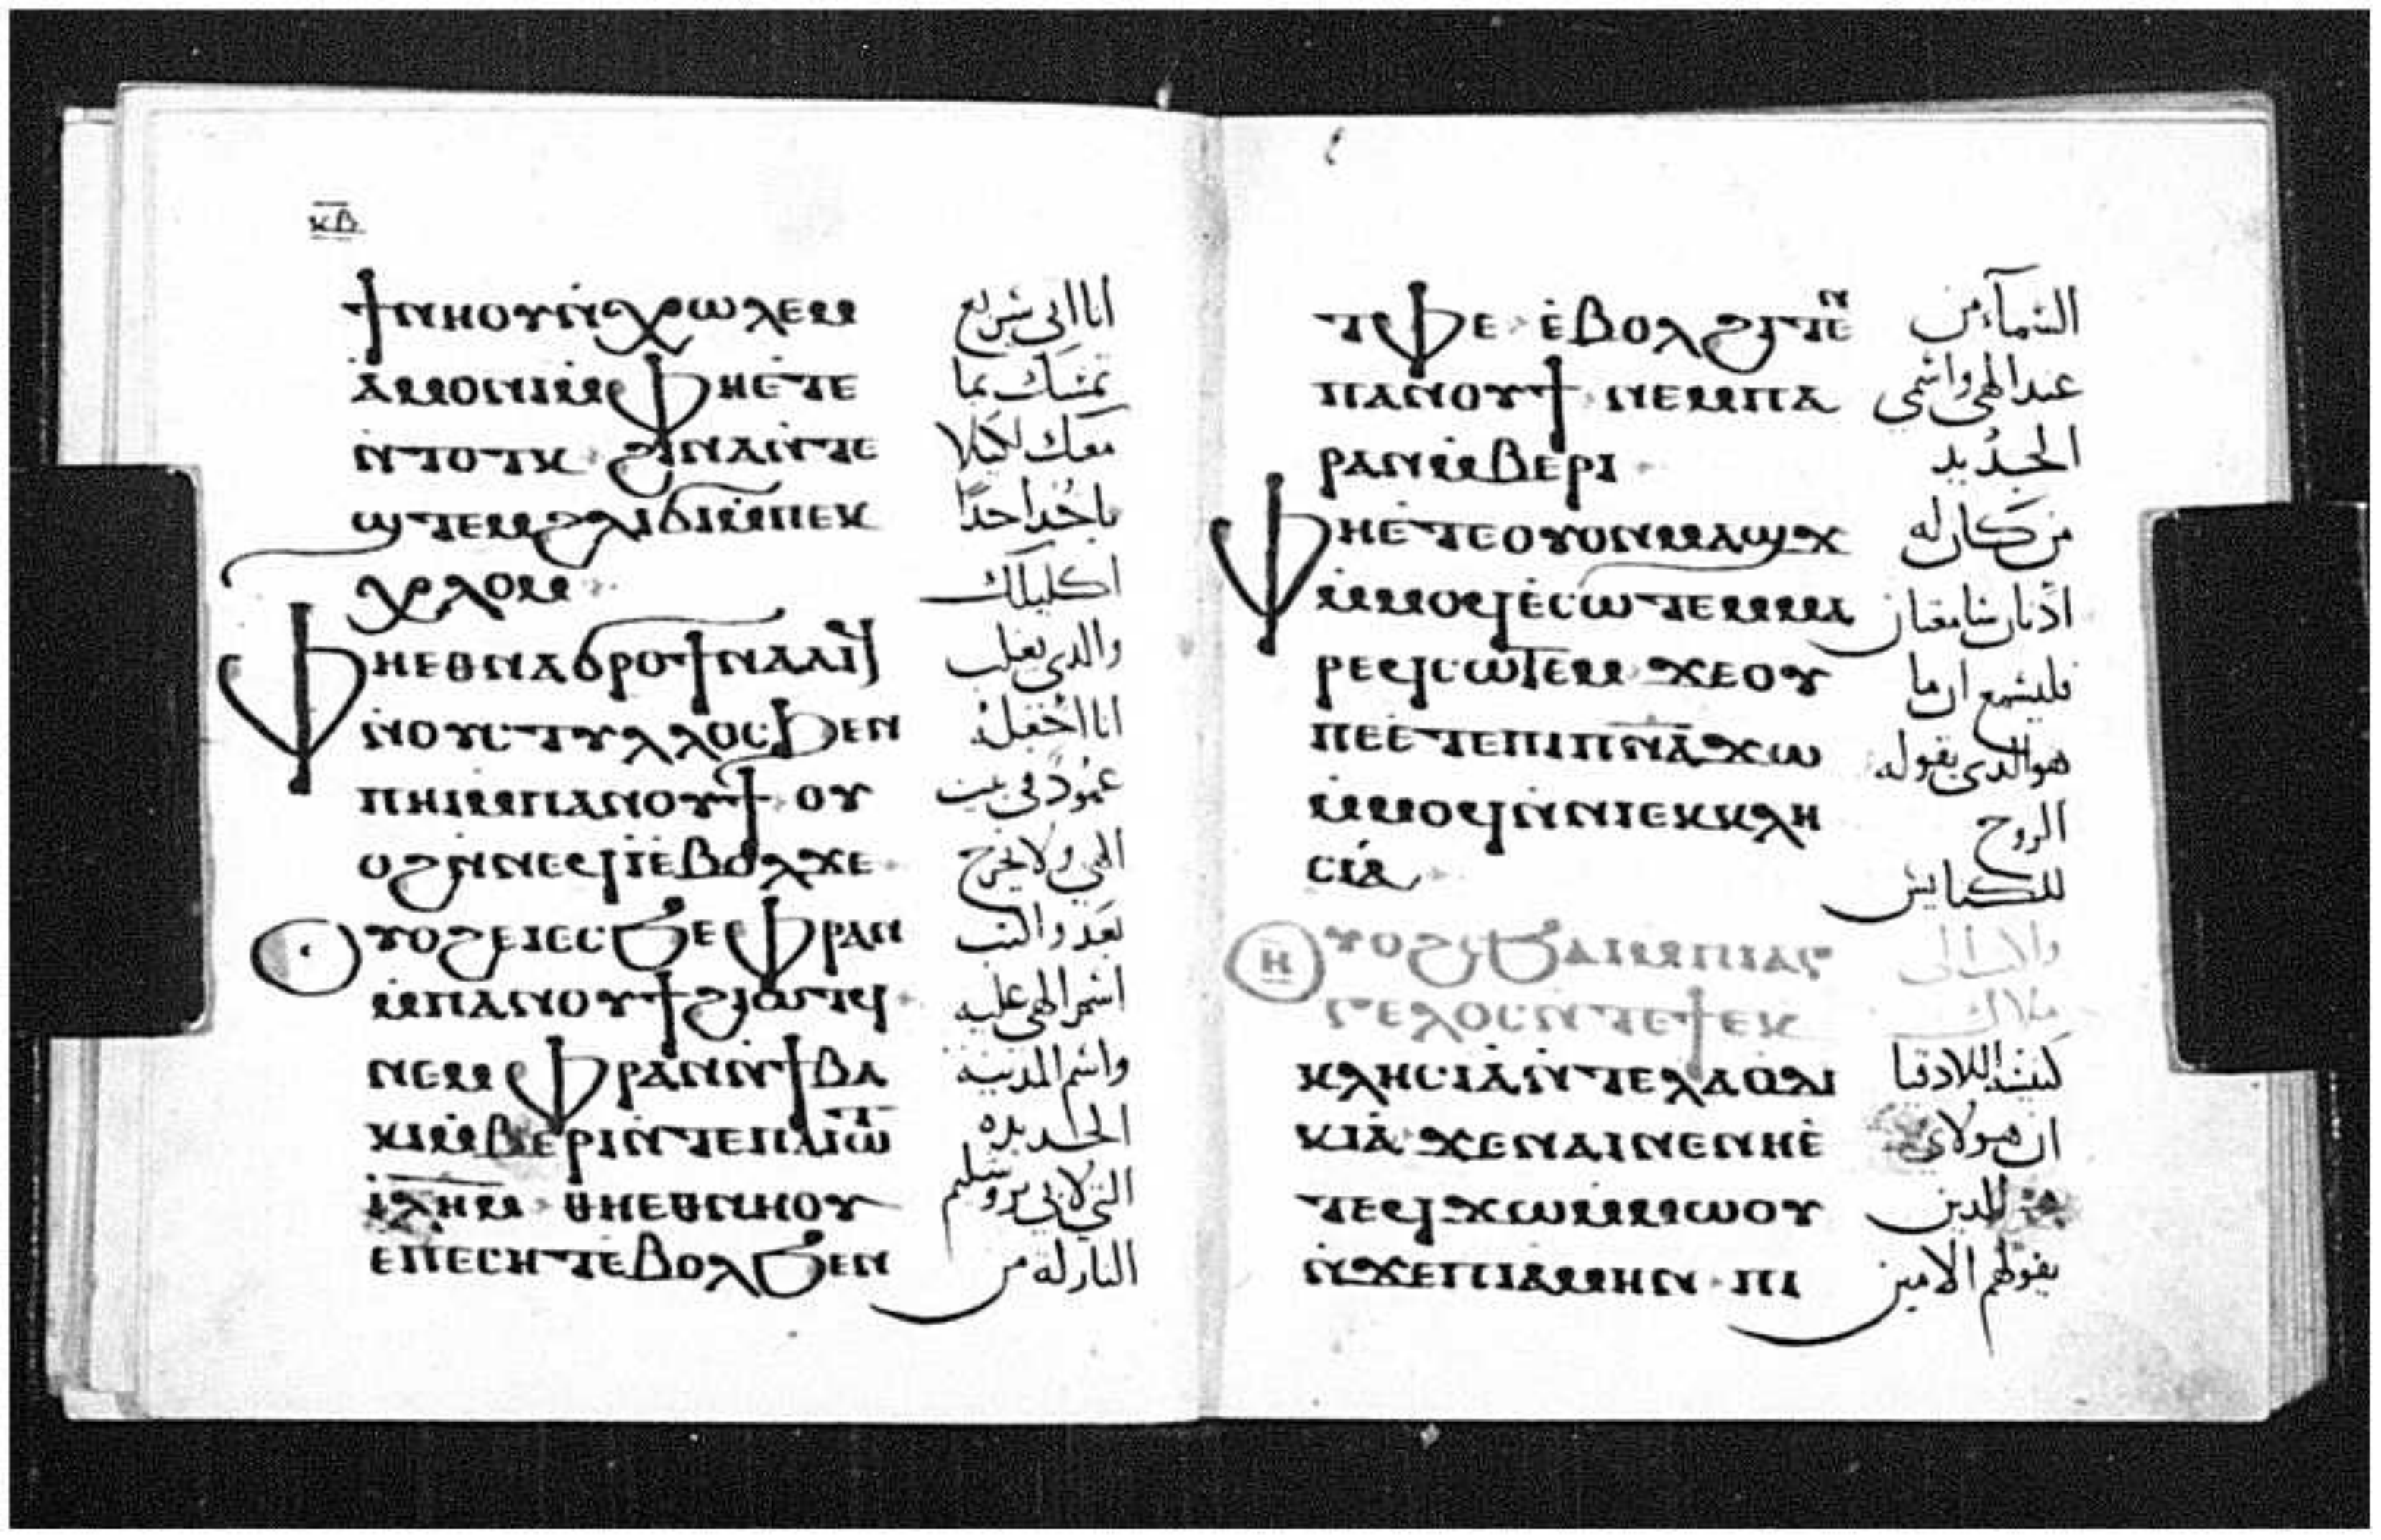 ⲕ̅ⲃ̅
ϯⲛⲏⲟⲩⲛ̀ⲭⲱⲗⲉⲙ
ⲁ̀ⲙⲟⲛⲓⲙ̀ⲫⲏⲉ̀ⲧⲉ
ⲛ̀ⲧⲟⲧⲕ ϩⲓⲛⲁⲛ̀ⲧⲉ
ϣⲧⲉⲙϩⲗⲓϭⲓⲙ̀ⲡⲉⲕ
ⲭⲗⲟⲙ
ⲫⲏⲉⲑⲛⲁϭⲣⲟϯⲛⲁⲁⲓϥ
ⲛ̀ⲟⲩⲥⲧⲩⲗⲗⲟⲥϧⲉⲛ
ⲡⲏⲓⲙ̀ⲡⲁⲛⲟⲩϯ ⲟⲩ
ⲟϩⲛ̀ⲛⲉϥⲓ̀ⲉ̀ⲃⲟⲗϫⲉ
ⲩⲟϩⲉⲓⲉⲥϧⲉⲫⲣⲁⲛ
ⲙ̀ⲡⲁⲛⲟⲩϯϩⲓⲱⲧϥ
ⲛⲉⲙⲫⲣⲁⲛⲛ̀ϯⲃⲁ
ⲕⲓⲙ̀ⲃⲉⲣⲓⲛ̀ⲧⲉⲡⲁⲓⲱ̅ⲧ̅
ⲓ̅ⲗ̅ⲏ̅ⲙ̅ ⲑⲏⲉⲑⲛⲏⲟⲩ
ⲉⲡⲉⲥⲏⲧⲉⲃⲟⲗϧⲉⲛ
انا اتى سريع
تمسك بما
معك لكيلا
ياخد احدًا
اكليلك
والدى يغلب
انا اجعله
عمود فى بيت
الهى ولا يخرج
بعد واكتب
اسم الهى عليه
واسم المدينة
الجديده
التى لابى يروشليم
النازله من
ⲧⲫⲉ ⲉ̀ⲃⲟⲗϩⲓⲧⲉⲛ
ⲡⲁⲛⲟⲩϯ ⲛⲉⲙⲡⲁ
ⲣⲁⲛⲙ̀ⲃⲉⲣⲓ
ⲫⲏⲉ̀ⲧⲉⲟⲩⲟⲛⲙⲁϣϫ
ⲙ̀ⲙⲟϥⲉ̀ⲥⲱⲧⲉⲙⲙⲁ
ⲣⲉϥⲥⲱⲧⲉⲙ ϫⲉⲟⲩ
ⲡⲉⲉ̀ⲧⲉⲡⲓⲡ̅ⲛ̅ⲁ̅ϫⲱ
ⲙ̀ⲙⲟϥⲛ̀ⲛⲓⲉⲕⲕⲗⲏ
ⲥⲓⲁ̀
ⲏ̅ ⲩⲟϩⲥϧⲁⲓⲙ̀ⲡⲓⲁⲅ
ⲅⲉⲗⲟⲥⲛ̀ⲧⲉϯⲉⲕ
ⲕⲗⲏⲥⲓⲁ̀ⲛ̀ⲧⲉⲗⲁⲟⲇⲓ
ⲕⲓⲁ̀ ϫⲉⲛⲁⲓⲛⲉⲛⲏⲉ̀
ⲧⲉϥϫⲱⲙ̀ⲙⲱⲟⲩ
ⲛ̀ϫⲉⲡⲓⲁⲙⲏⲛ ⲡⲓ
السمآء من
عند الهى واسمى
الجديد
من كان له
اذنان سامعتان
فليسمع ان ما
هو الدى يقوله
الروح
للكنايس
واكتب الى
ملاك
كنيسة اللادقيا
ان هولاى
الدين
يقولهم الامين